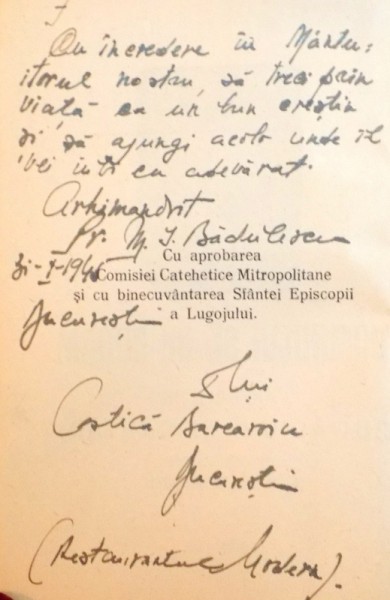 Cu încredere în Mântu-
itorul nostru, să treci prin
viață ca un bun creștin
și să ajungi acolo unde îl
vei iubi cu adevărat.
Arhimandrit
Pr. M. I. Bădulescu
Cu aprobarea
31-I-194
Comisiei Catehetice Mitropolitane
și cu binecuvântarea Sfântei Episcopii
București
a Lugojului.
Lui
Costică
București
(Restaurantul Modern).